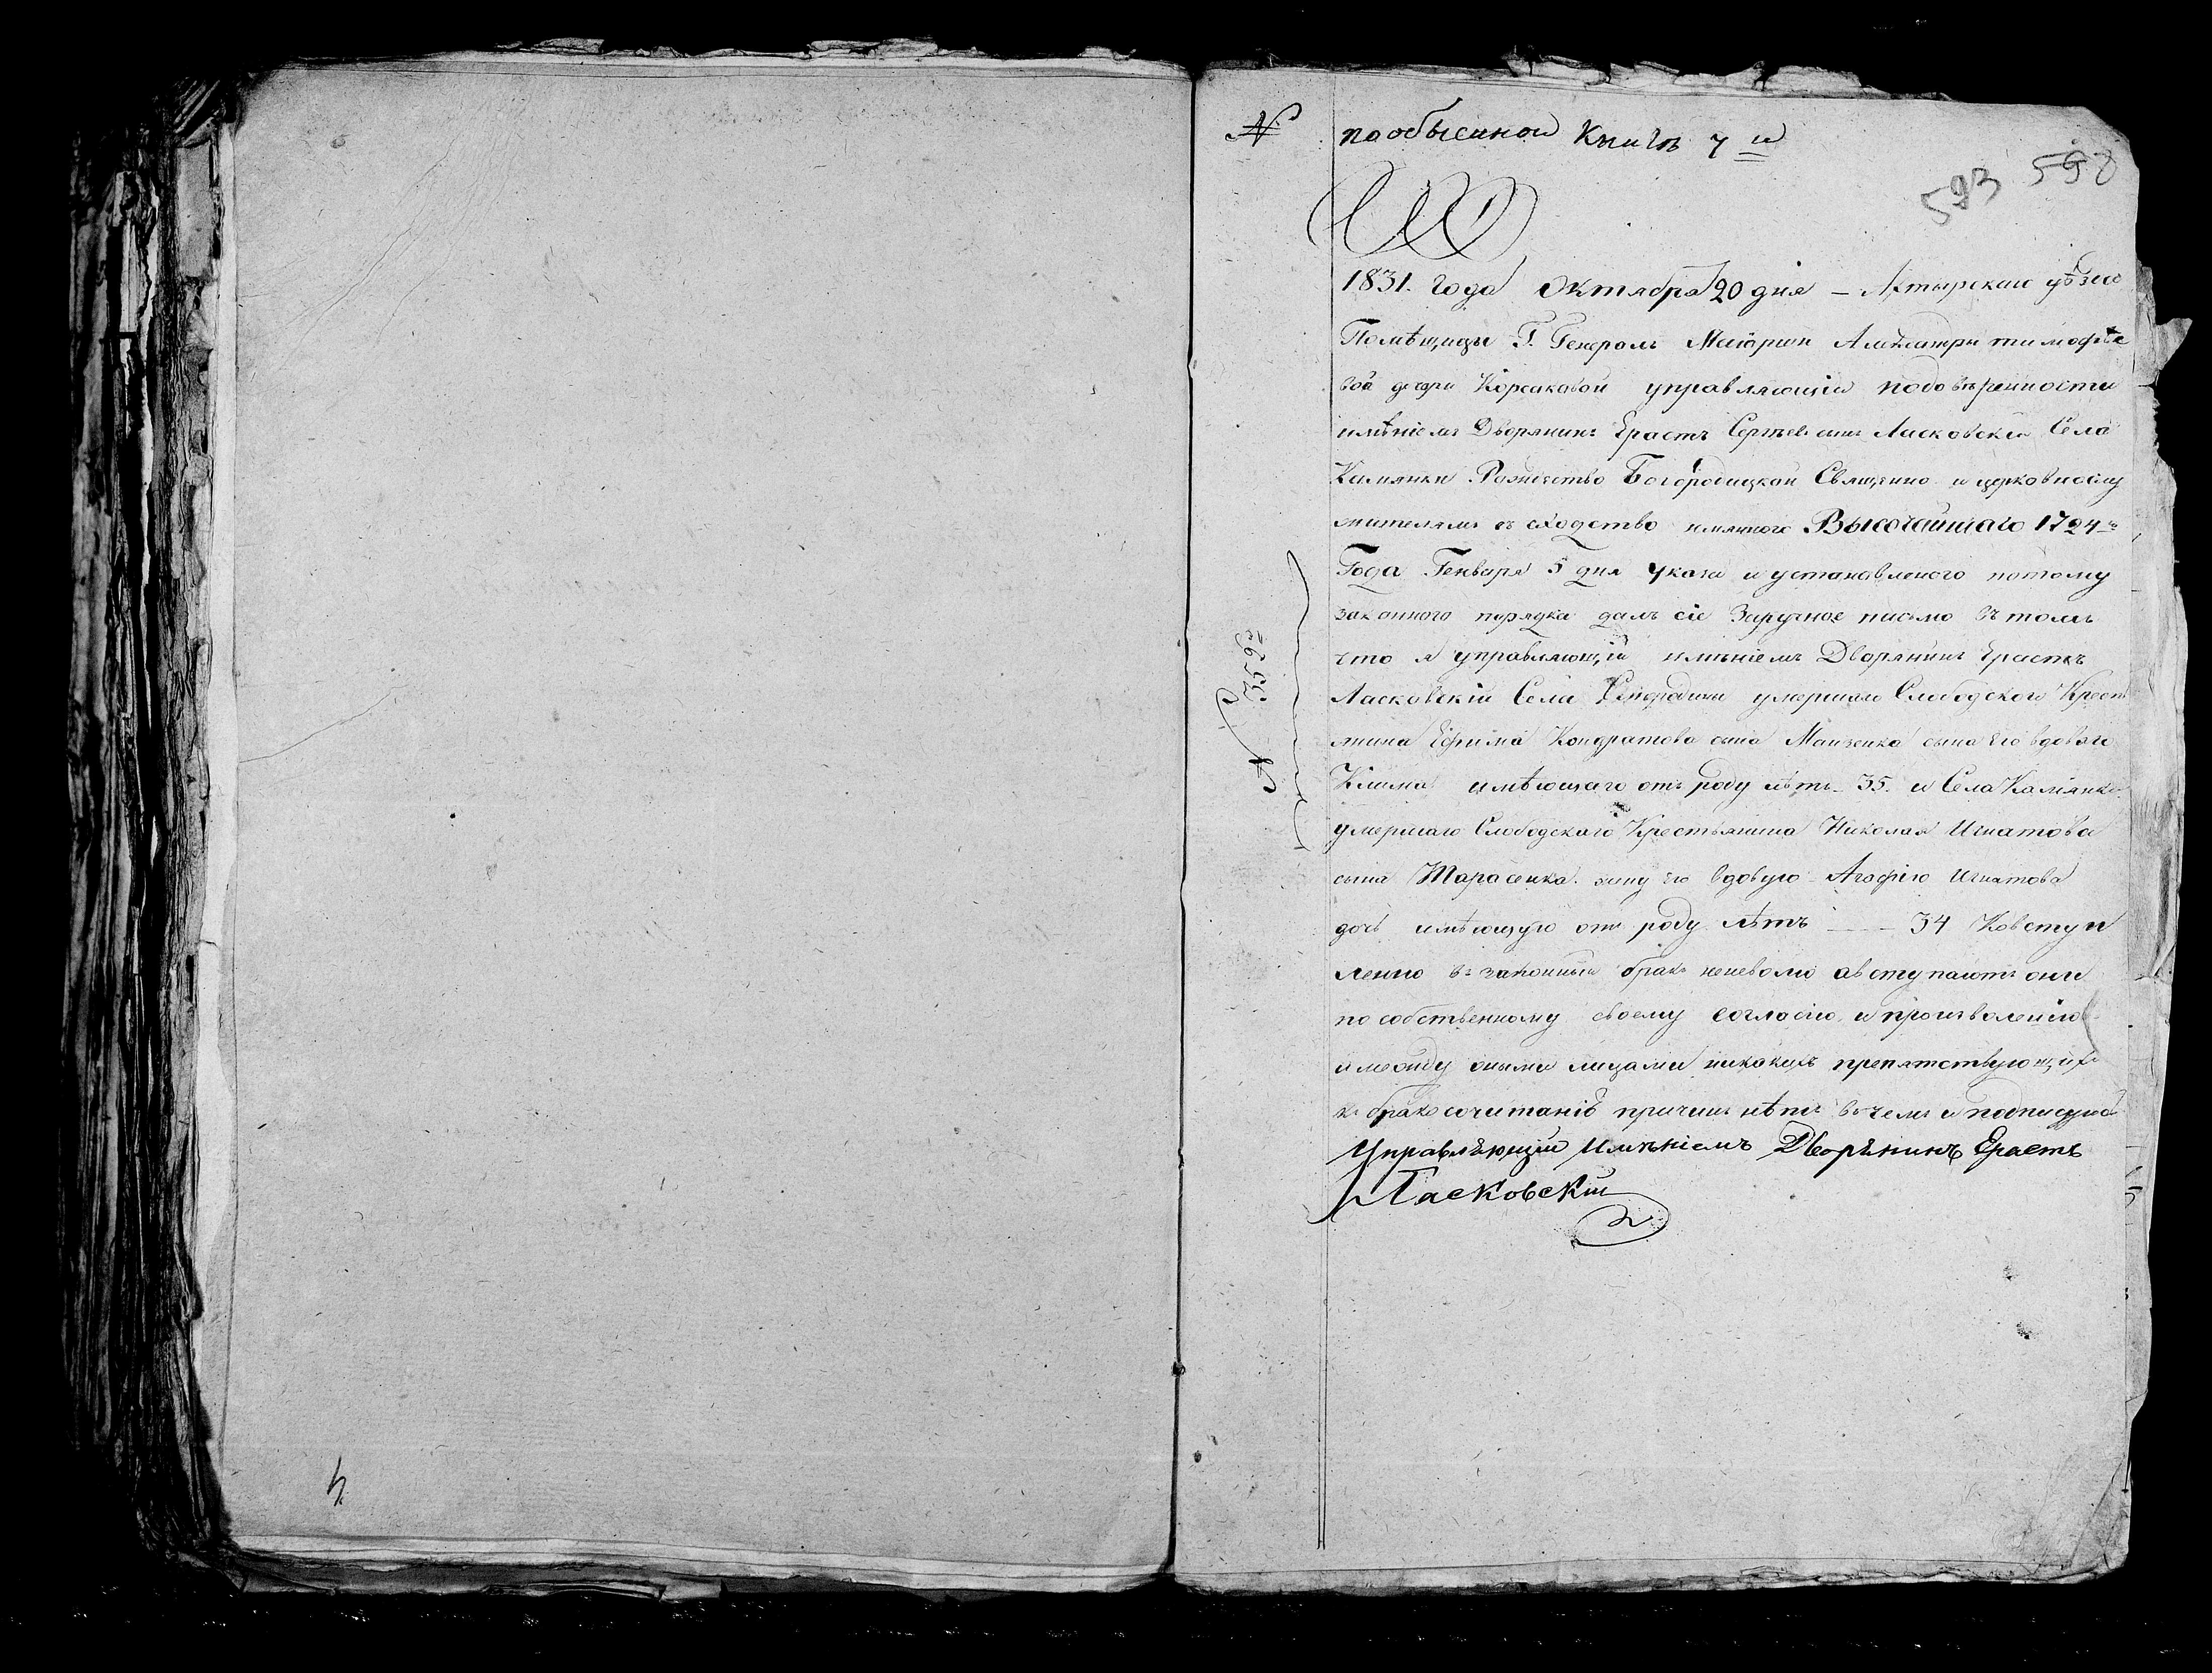 № пообысиной Книгѣ 7й
593 598
1831. года Октября 20 дня — Ахтырскаго уѣзда
Помѣщицы Г. Генералъ Маіорши Александри тимофѣе
вой дочери Корсаковой управляющій подовѣренности
имѣніемъ Дворянинъ Ерастъ Сергѣевъ сынъ Ласковскій Села
Камянки Рождество Богородицкой Священно и церковнослу
жителямъ въ сходство имяннаго Высочайшаго 1724го
Года Генваря 5 дня указа и установленого потому
законного порядка далъ сіе Заручное писмо въ томъ
что я управляющій имѣніемъ Дворянинъ Ерастъ
Ласковскій Села умершаго Слободского Крест
янина Ефима Кондратова сына сына его вдоваго
Клима имѣющаго отъ роду лѣтъ 35. и Села Камянки
умершаго Слободскаго Крестьянина Николая Игнатова
сына Тарасенка. жену его вдовую Агафію Игнатова
дочь имѣющую отъ роду лѣтъ — — 34 Ковступ
ленію въ законный бракъ неневолю авступаютъ они
по собственному своему согласію и произволенію
имежду оными лицами никакихъ препятствующихъ
къ бракосочитанію причинъ нѣтъ вчемъ и подписуюсь
Управляющій Имѣніемъ Дворянинъ Ерастъ
Ласковскій
№ 5592